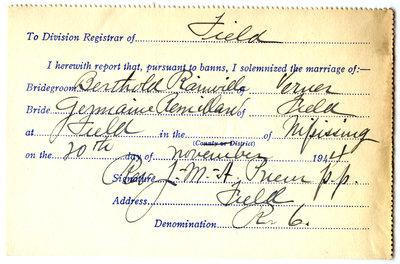 To Division Registrar of Field
I herewith report that, pursuant to banns, I solemnized the marriage of:—
Bridegroom Berthold Rainville Verner
Bride Germaine Remillard of Field
at Field in the of Nipissing
(County or District)
on the 20th day of November 194
Signature Rev. J.-M.-A. p.p.
Address Field
Denomination R. C.